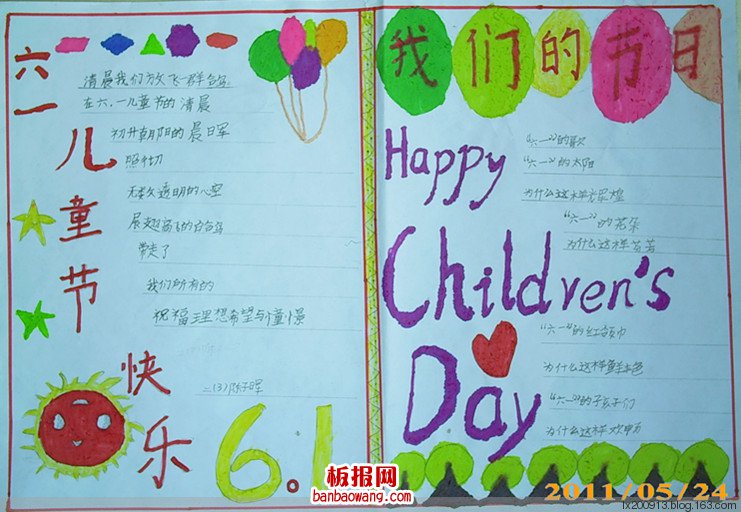 六一儿童节快乐
清晨我们放飞一群白鸽
在六.一儿童节的清晨
初升朝阳的晨日军
照彻
无数透明的心空
展翅高飞的白鸽
带走了
我们所有的
祝福理想希望与憧憬
二(3)陈子晖
6.1
我们的节日
Happy
Children's
Day
“六一”的歌
“六一”的太阳
为什么这样辉煌
“六一”的花朵
为什么这样芬芳
“六一”的红领巾
为什么这样鲜艳
“六一”的孩子们
为什么这样欢
板报网
banbaowang.com
2011/05/24
lx200913.blog.163.com